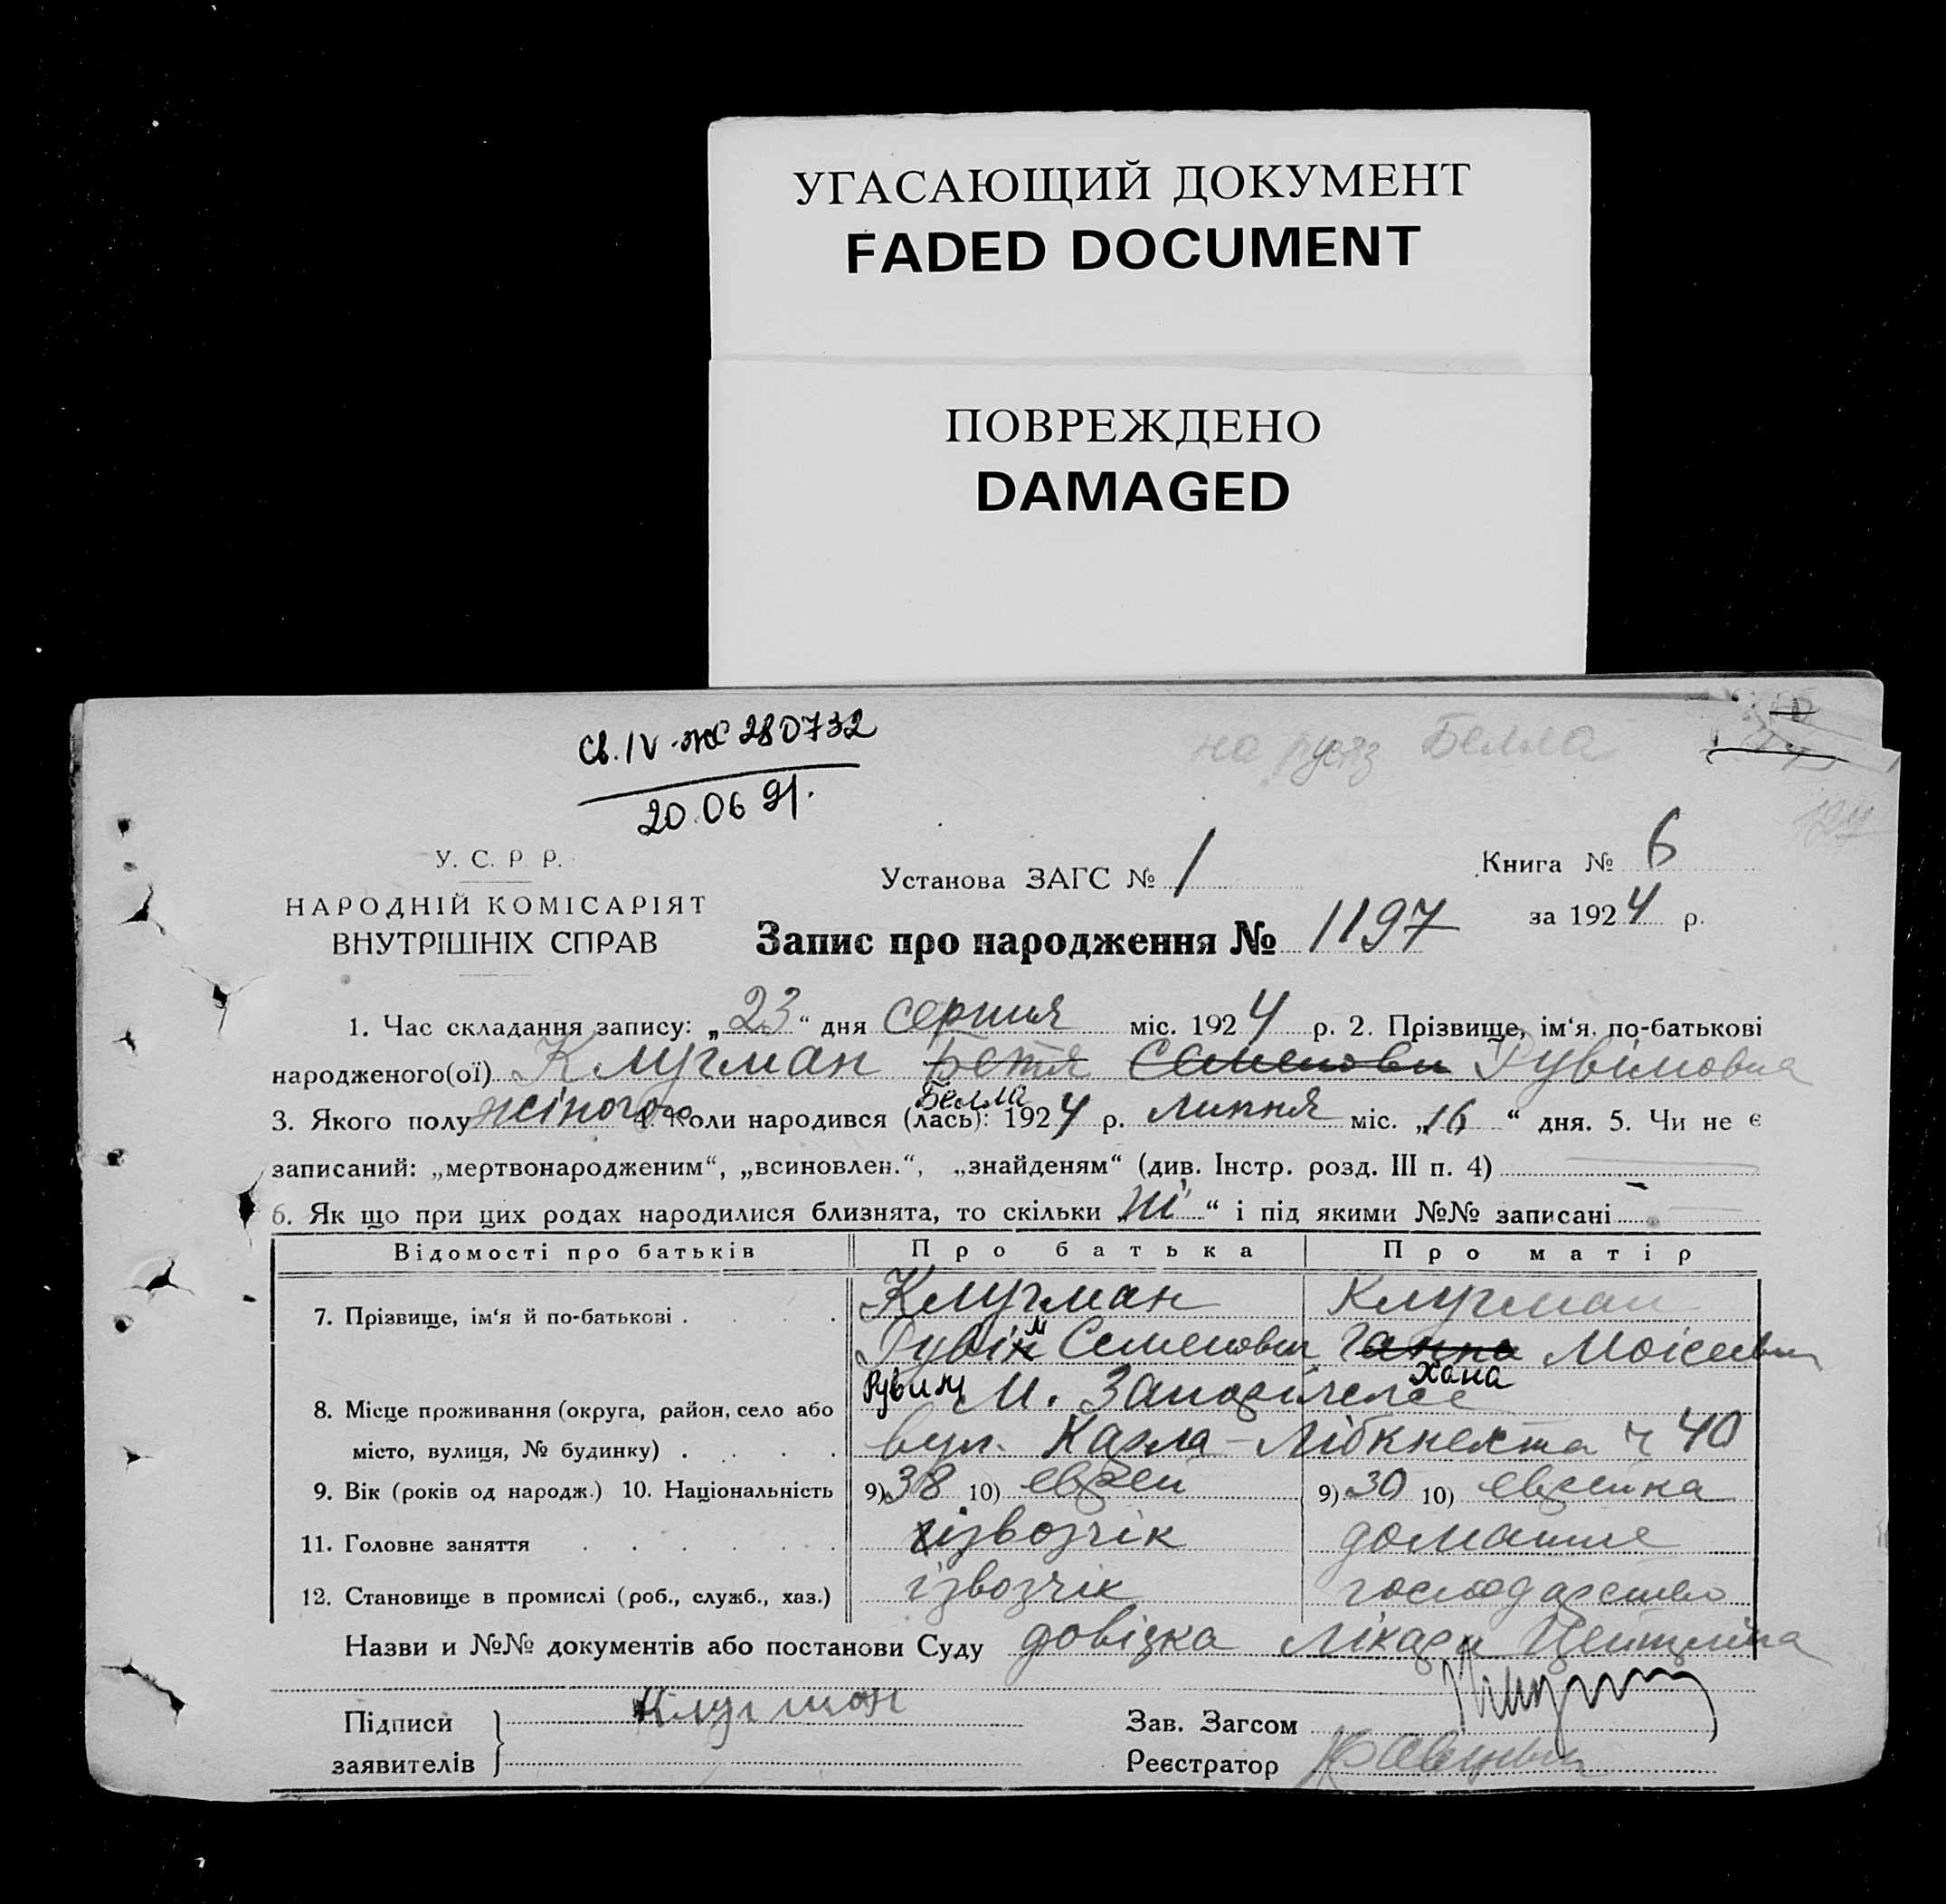 УГАСАЮЩИЙ ДОКУМЕНТ
FADED DOCUMENT
ПОВРЕЖДЕНО
DAMAGED
Св. IV-ЖС 280732
20.06 91.
на Белла
У. С. Р. Р.
НАРОДНІЙ КОМІСАРІЯТ
ВНУТРІШНІХ СПРАВ
Установа ЗАГС № 1
Книга № 6
за 1924 р.
Запис про народження № 1197
1. Час складання запису: „23“ дня серпня міс. 1924 р. 2. Прізвище, ім‘я, по-батькові
народженого(ої) Клугман Бетя Семеновн Рувімовна
Белла
3. Якого полу жіного 4. Коли народився (лась): 1924 р. липня міс. „16“ дня. 5. Чи не є
записаний: „мертвонародженим“, „всиновлен.“, „знайденям“ (див. Інстр. розд. III п. 4)
6. Як що при цих родах народилися близнята, то скільки „ні“ і під якими №№ записані
Відомості про батьків Про батька Про матір
7. Прізвище, ім‘я й по-батькові . Клугман Клугман
Рувім Семенович Ганна Моісеевн
Рувим Хана
8. Місце проживання (округа, район, село або м. Запоріжже
місто, вулиця, № будинку) . вул. Карла-Лібкнехта ч 40
9. Вік (років од народж.) 10. Національність 9) 38 10) еврей 9) 30 10) еврейка
11. Головне заняття ізвозчік домашне
12. Становище в промислі (роб., служб., хаз.) ізвозчік господарство
Назви и №№ документів або постанови Суду довідка лікаря Цейтліна
Підписи заявителів Клугман
Зав. Загсом
Реєстратор